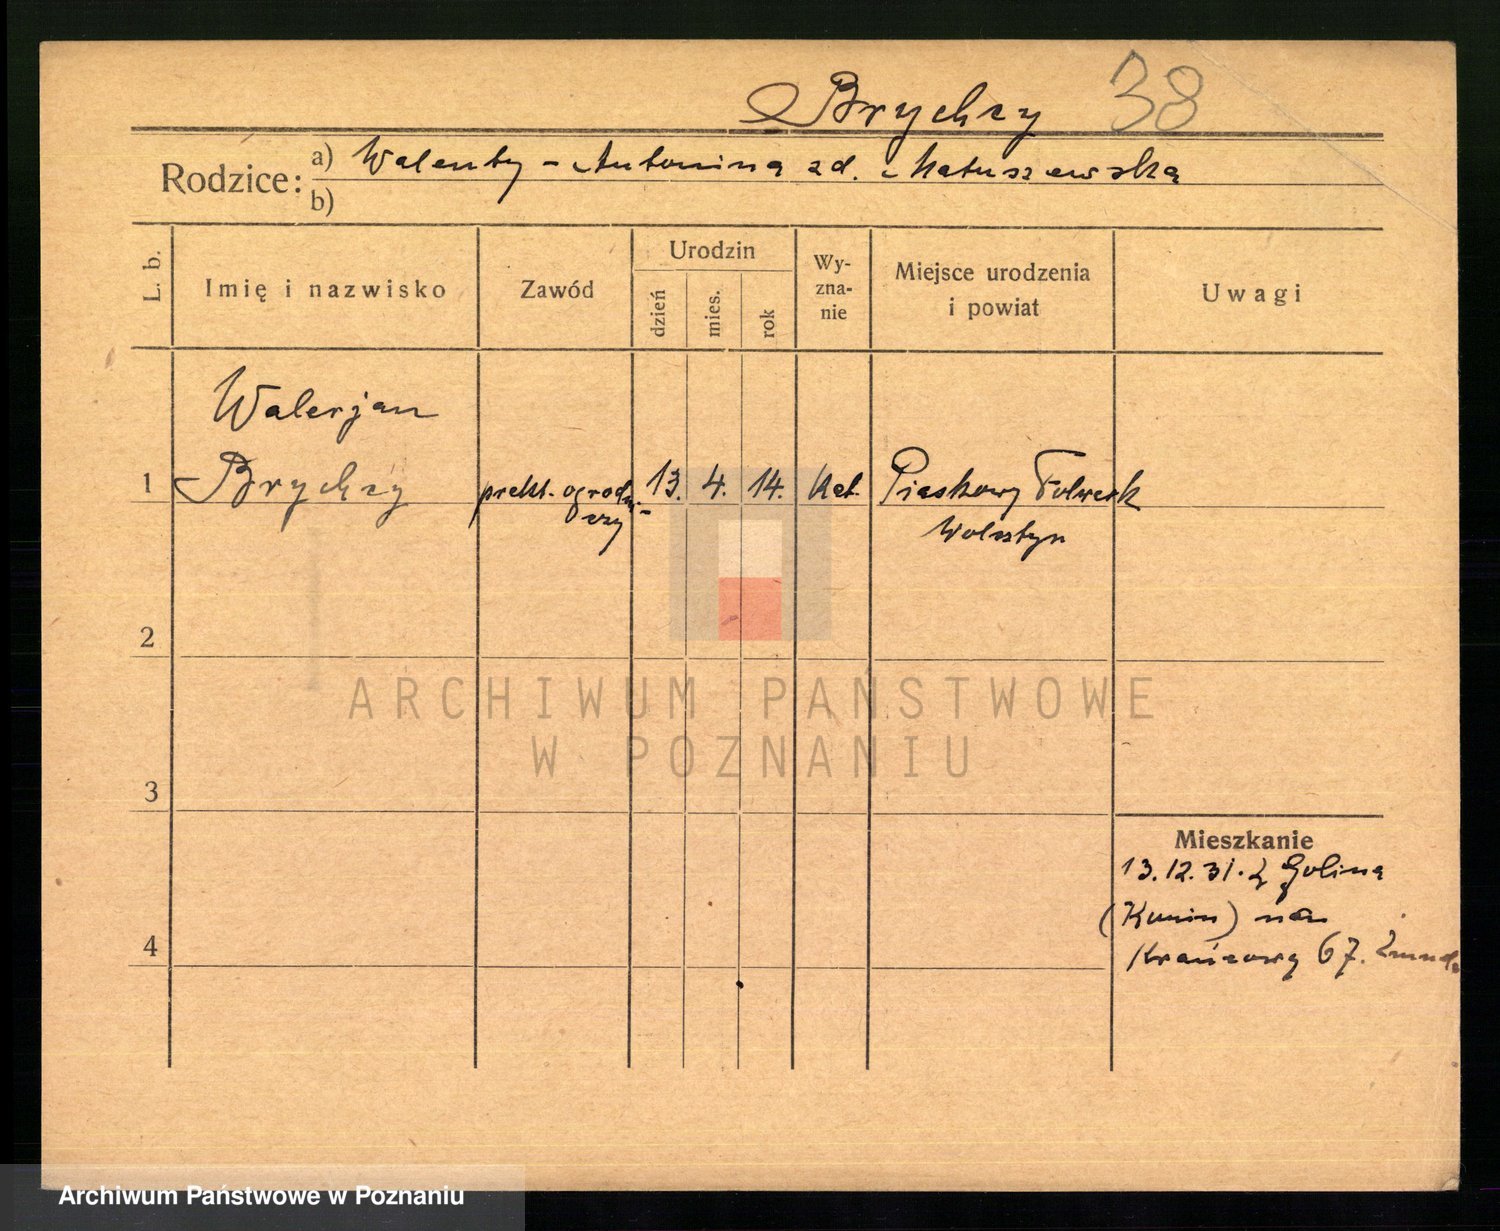 Brychzy 38
Rodzice: a) Walenty - Antonina zd. Matuszewska
b)
L. b.
Imię i nazwisko
Zawód
Urodzin
dzień
mies.
rok
Wy-
zna-
nie
Miejsce urodzenia
i powiat
Uwagi
Walerjan
1 Brychzy prakt. ogrodni- 13. 4. 14. kat. Piaskowy Folwark
czy Wolsztyn
2
3
4
Mieszkanie
13.12.31. z Golina
(Konin) na
Krańcową 67.
ARCHIWUM PAŃSTWOWE
W POZNANIU
Archiwum Państwowe w Poznaniu